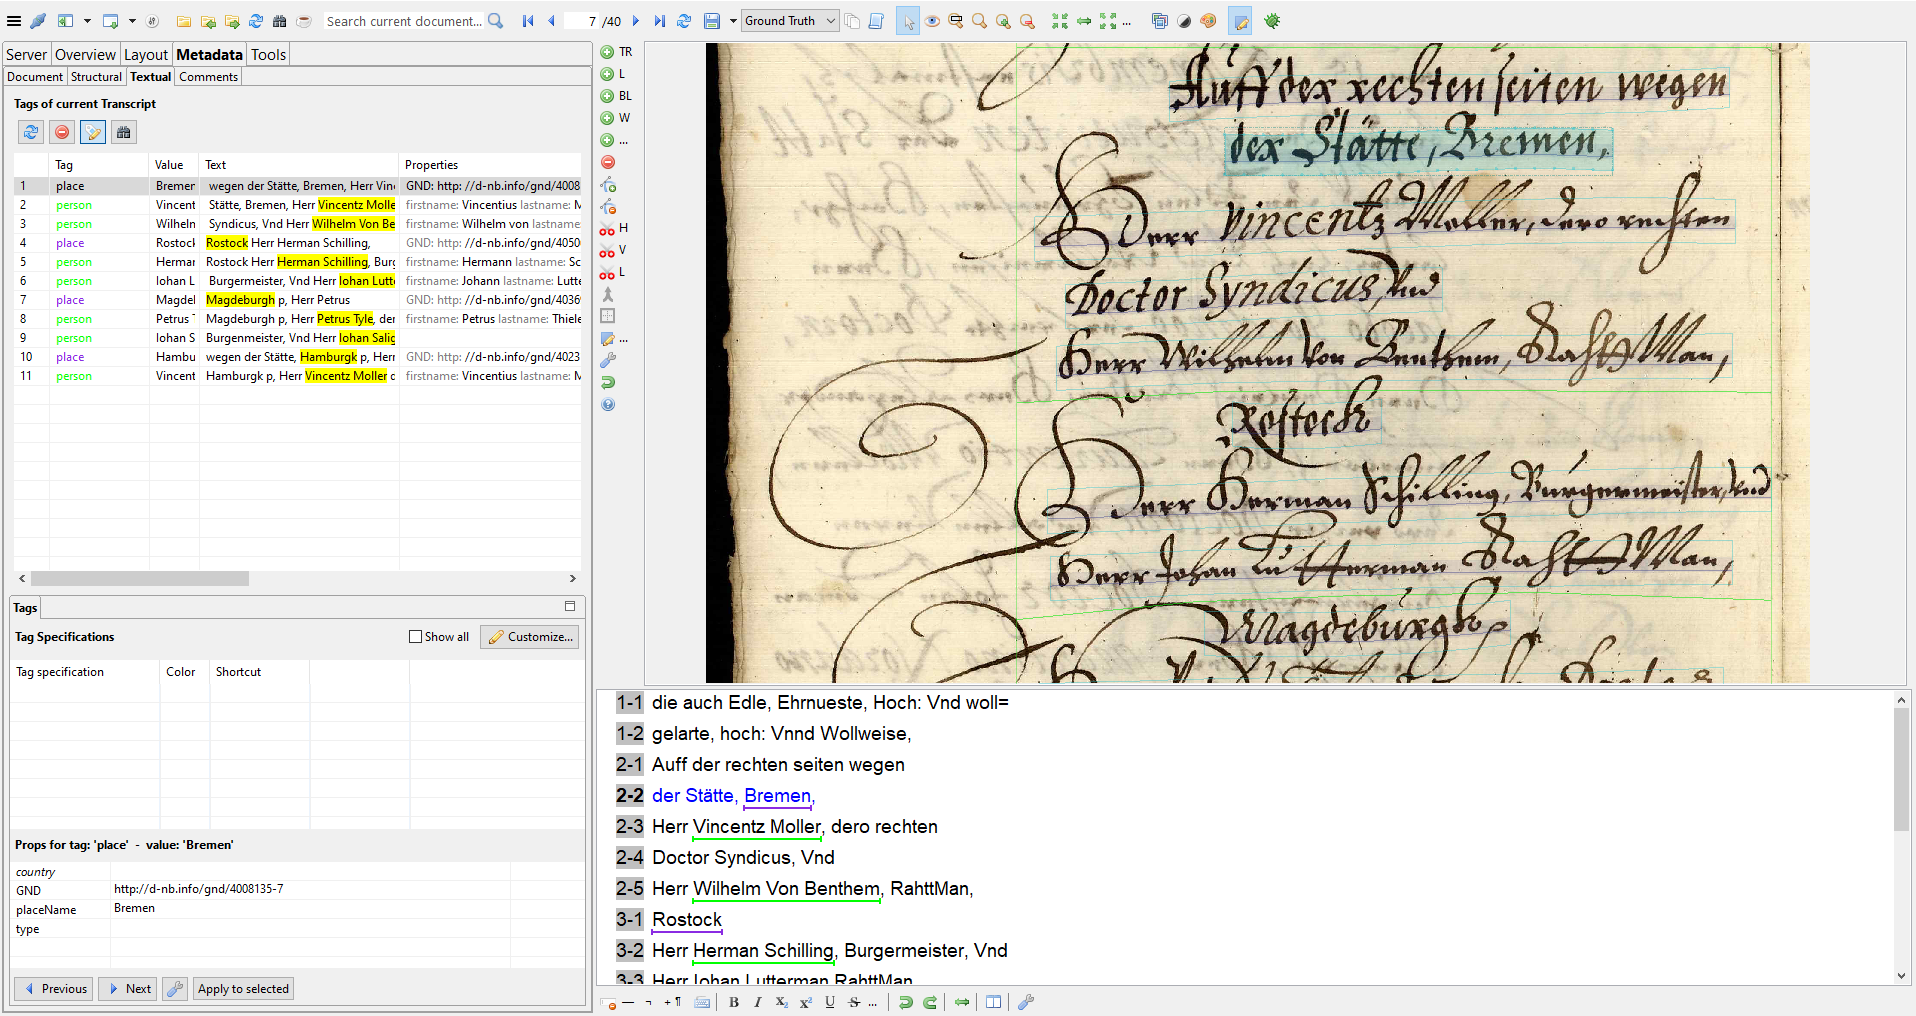 Search current document...
7 /40
Ground Truth
...
Server Overview Layout Metadata Tools
Document Structural Textual Comments
Tags of current Transcript
Tag Value Text Properties
1 place Bremen wegen der Stätte, Bremen, Herr Vin GND: http: //d-nb.info/gnd/4008
2 person Vincent Stätte, Bremen, Herr Vincentz Molle firstname: Vincentius lastname: M
3 person Wilheln Syndicus, Vnd Herr Wilhelm Von Be firstname: Wilhelm von lastname:
4 place Rostock Rostock Herr Herman Schilling, GND: http: //d-nb.info/gnd/4050
5 person Hermar Rostock Herr Herman Schilling, Burg firstname: Hermann lastname: Sc
6 person Iohan L Burgermeister, Vnd Herr Iohan Lutt firstname: Johann lastname: Lutte
7 place Magdel Magdeburgh p, Herr Petrus GND: http: //d-nb.info/gnd/4036
8 person Petrus Magdeburgh p, Herr Petrus Tyle, der firstname: Petrus lastname: Thiele
9 person Iohan S Burgenmeister, Vnd Herr Iohan Salig
10 place Hambu wegen der Stätte, Hamburgk p, Herr GND: http: //d-nb.info/gnd/4023
11 person Vincent Hamburgk p, Herr Vincentz Moller d firstname: Vincentius lastname: M
Tags
Tag Specifications Show all Customize...
Tag specification Color Shortcut
Props for tag: 'place' - value: 'Bremen'
country
GND http://d-nb.info/gnd/4008135-7
placeName Bremen
type
Previous Next Apply to selected
TR
L
BL
W
...
H
V
L
...
Auff der rechten seiten wegen
der Stätte, Bremen,
Herr Vincentz Moller, dero rechten
Doctor Syndicus, Vnd
Herr Wilhelm Von Benthem, RahttMan,
Rostock
Herr Herman Schilling, Burgermeister, Vnd
Herr Johan Lutterman RahttMan,
Magdeburgh p
1-1 die auch Edle, Ehrnueste, Hoch: Vnd woll=
1-2 gelarte, hoch: Vnnd Wollweise,
2-1 Auff der rechten seiten wegen
2-2 der Stätte, Bremen,
2-3 Herr Vincentz Moller, dero rechten
2-4 Doctor Syndicus, Vnd
2-5 Herr Wilhelm Von Benthem, RahttMan,
3-1 Rostock
3-2 Herr Herman Schilling, Burgermeister, Vnd
3-3 Herr Iohan Lutterman RahttMan
— ¬ +¶ B I X₂ X² U S ...